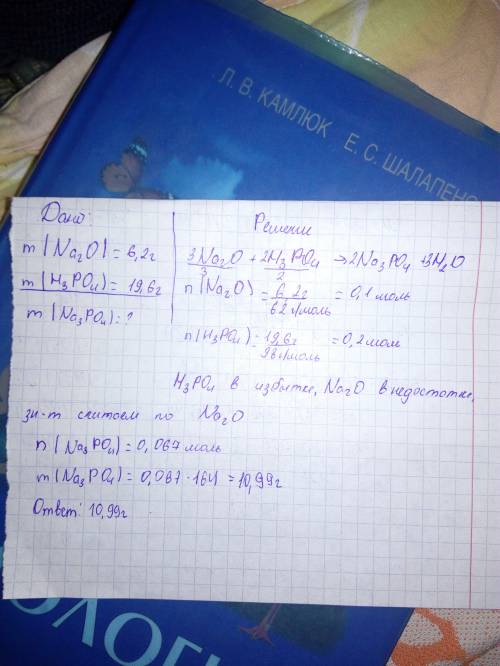 Л. В. КАМЛЮК
Е. С. ШАЛАПЕНО
Дано:
m(Na₂O) = 6,2г
m(H₃PO₄) = 19,6г
m(Na₃PO₄) = ?
Решение
3Na₂O + 2H₃PO₄ → 2Na₃PO₄ + 3H₂O
3 2
n(Na₂O) = 6,2г / 62г/моль = 0,1 моль
n(H₃PO₄) = 19,6г / 98г/моль = 0,2 мол
H₃PO₄ в избытке, Na₂O в недостатке,
зн-т считаем по Na₂O
n(Na₃PO₄) = 0,067 моль
m(Na₃PO₄) = 0,067 · 164 = 10,99г
Ответ: 10,99г
ОЛОГИ